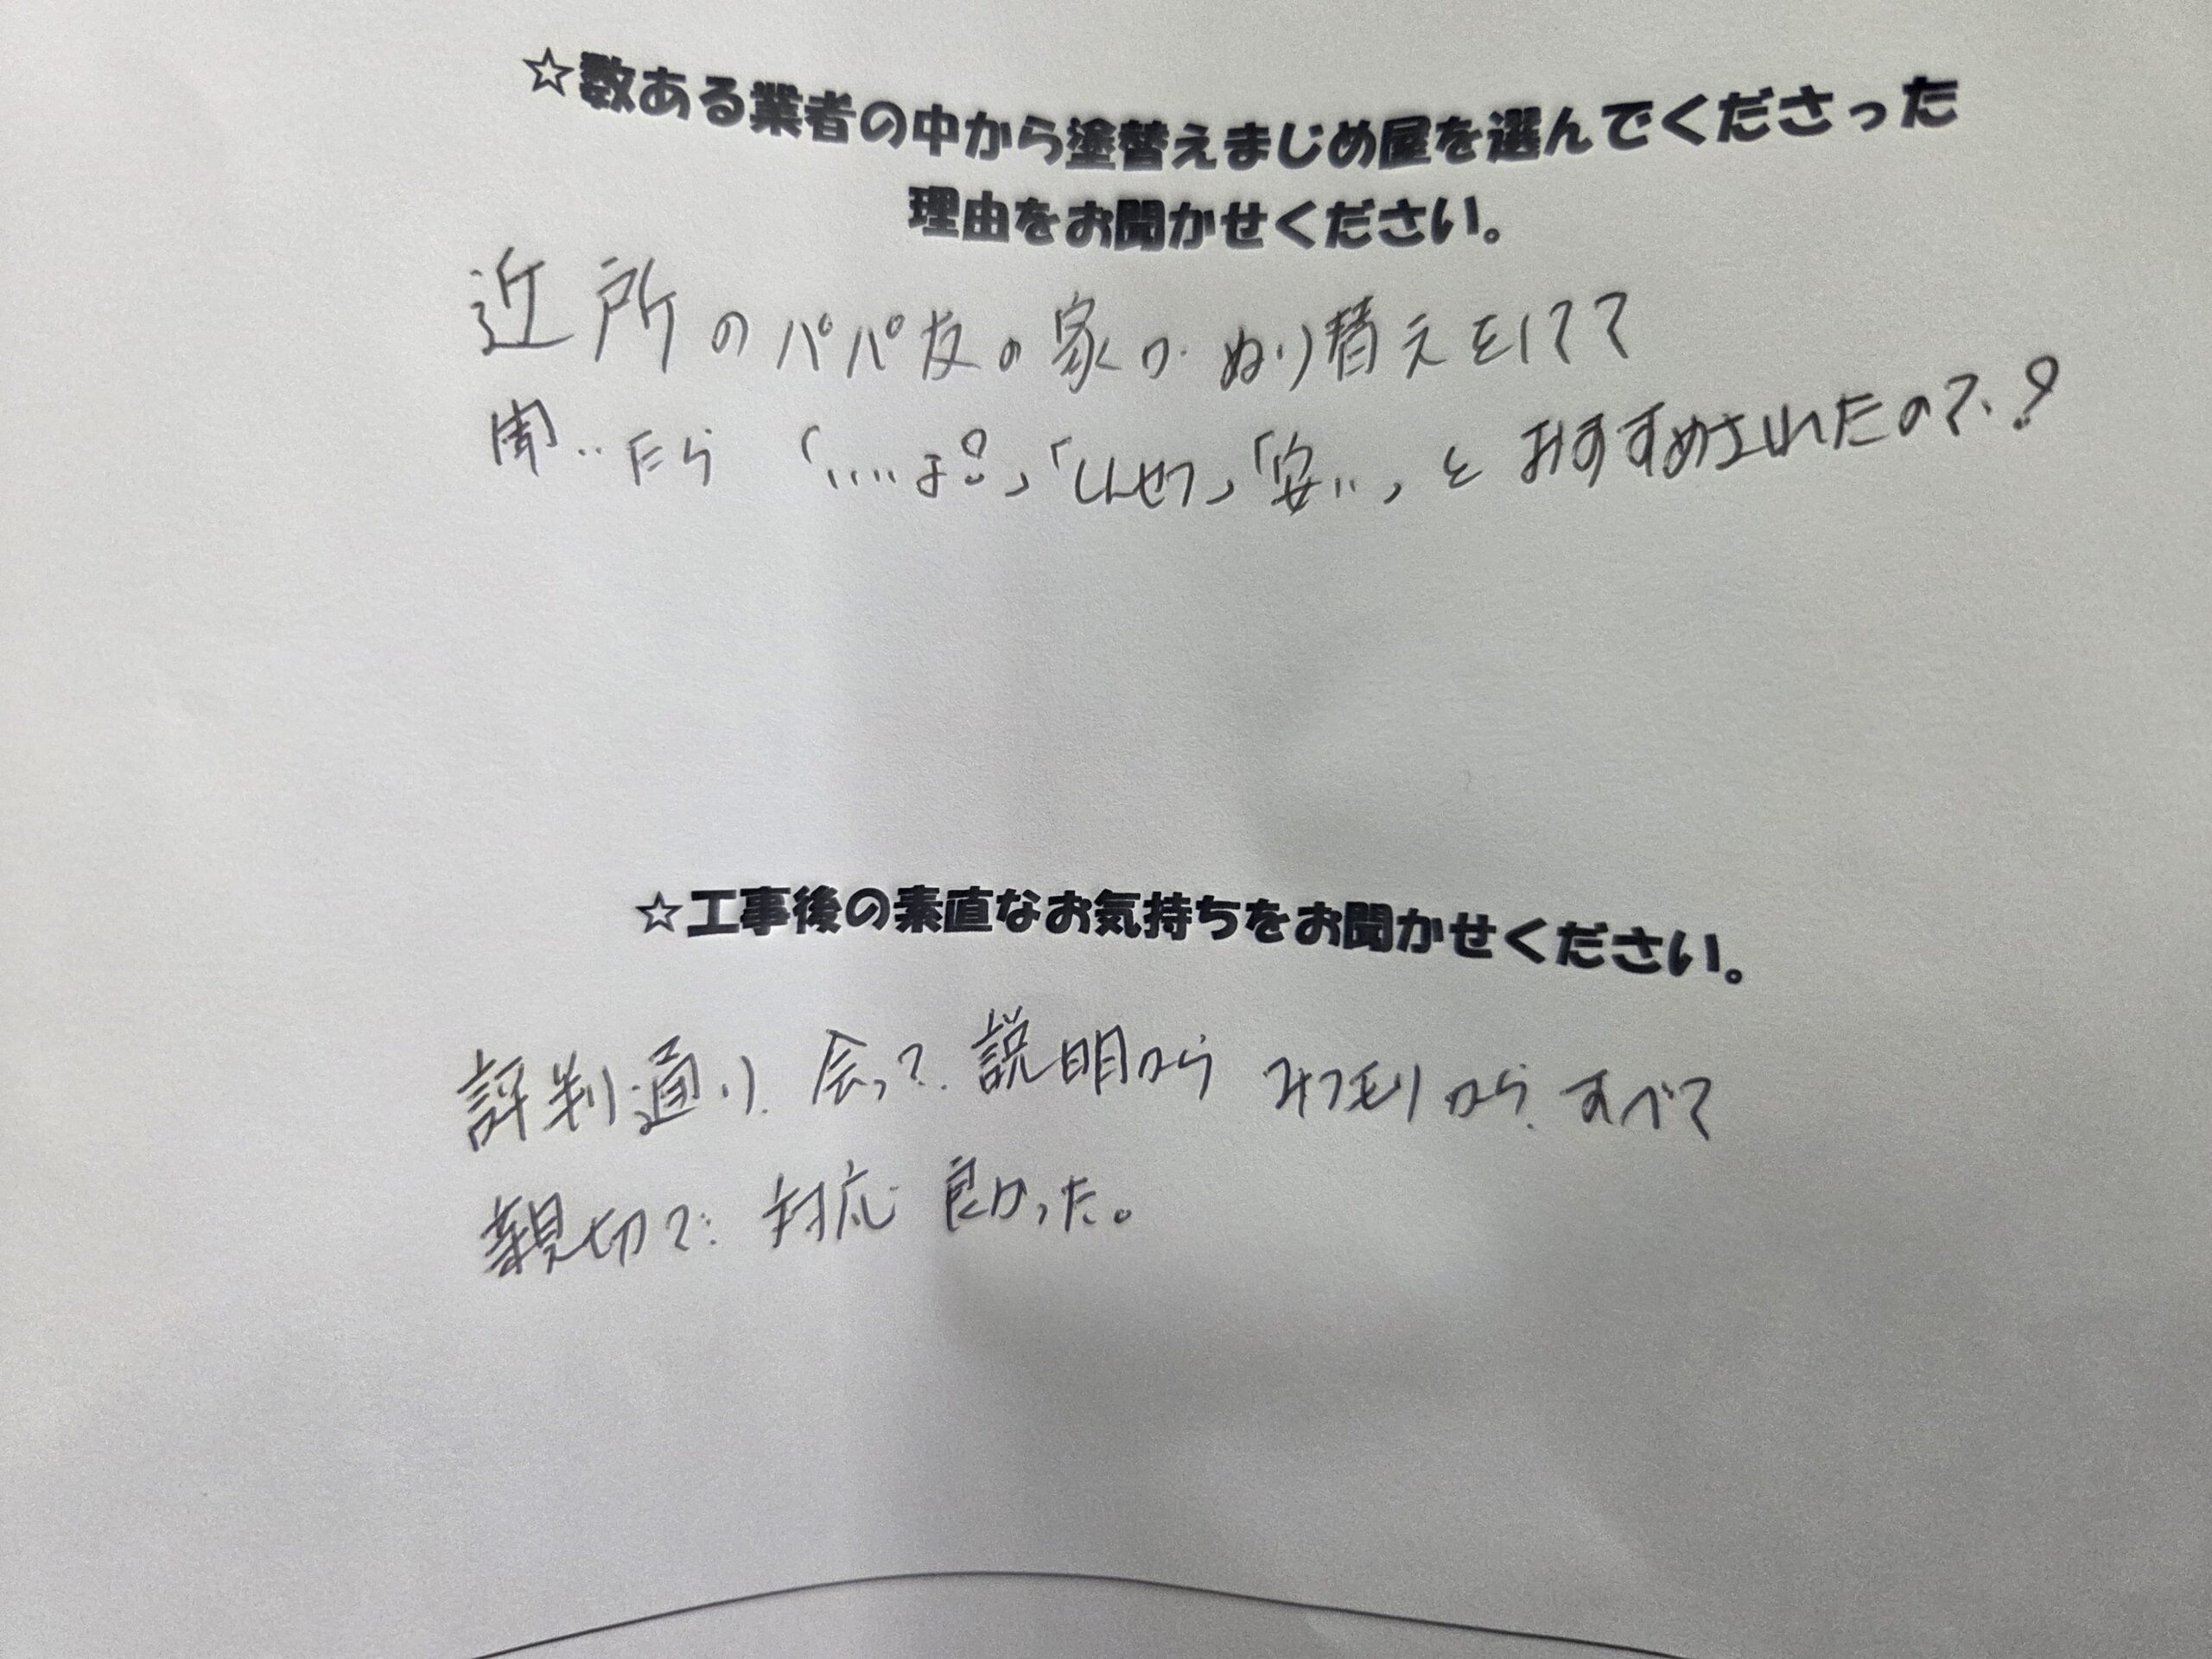 ☆数ある業者の中から塗替えまじめ屋を選んでくださった
理由をお聞かせください。
近所のパパ友の家がぬり替えをしてて
聞いたら「いいよ!」「しんせつ」「安い」とおすすめされたので!
☆工事後の素直なお気持ちをお聞かせください。
評判通り、会って説明からみつもりから、すべて
親切で対応良かった。